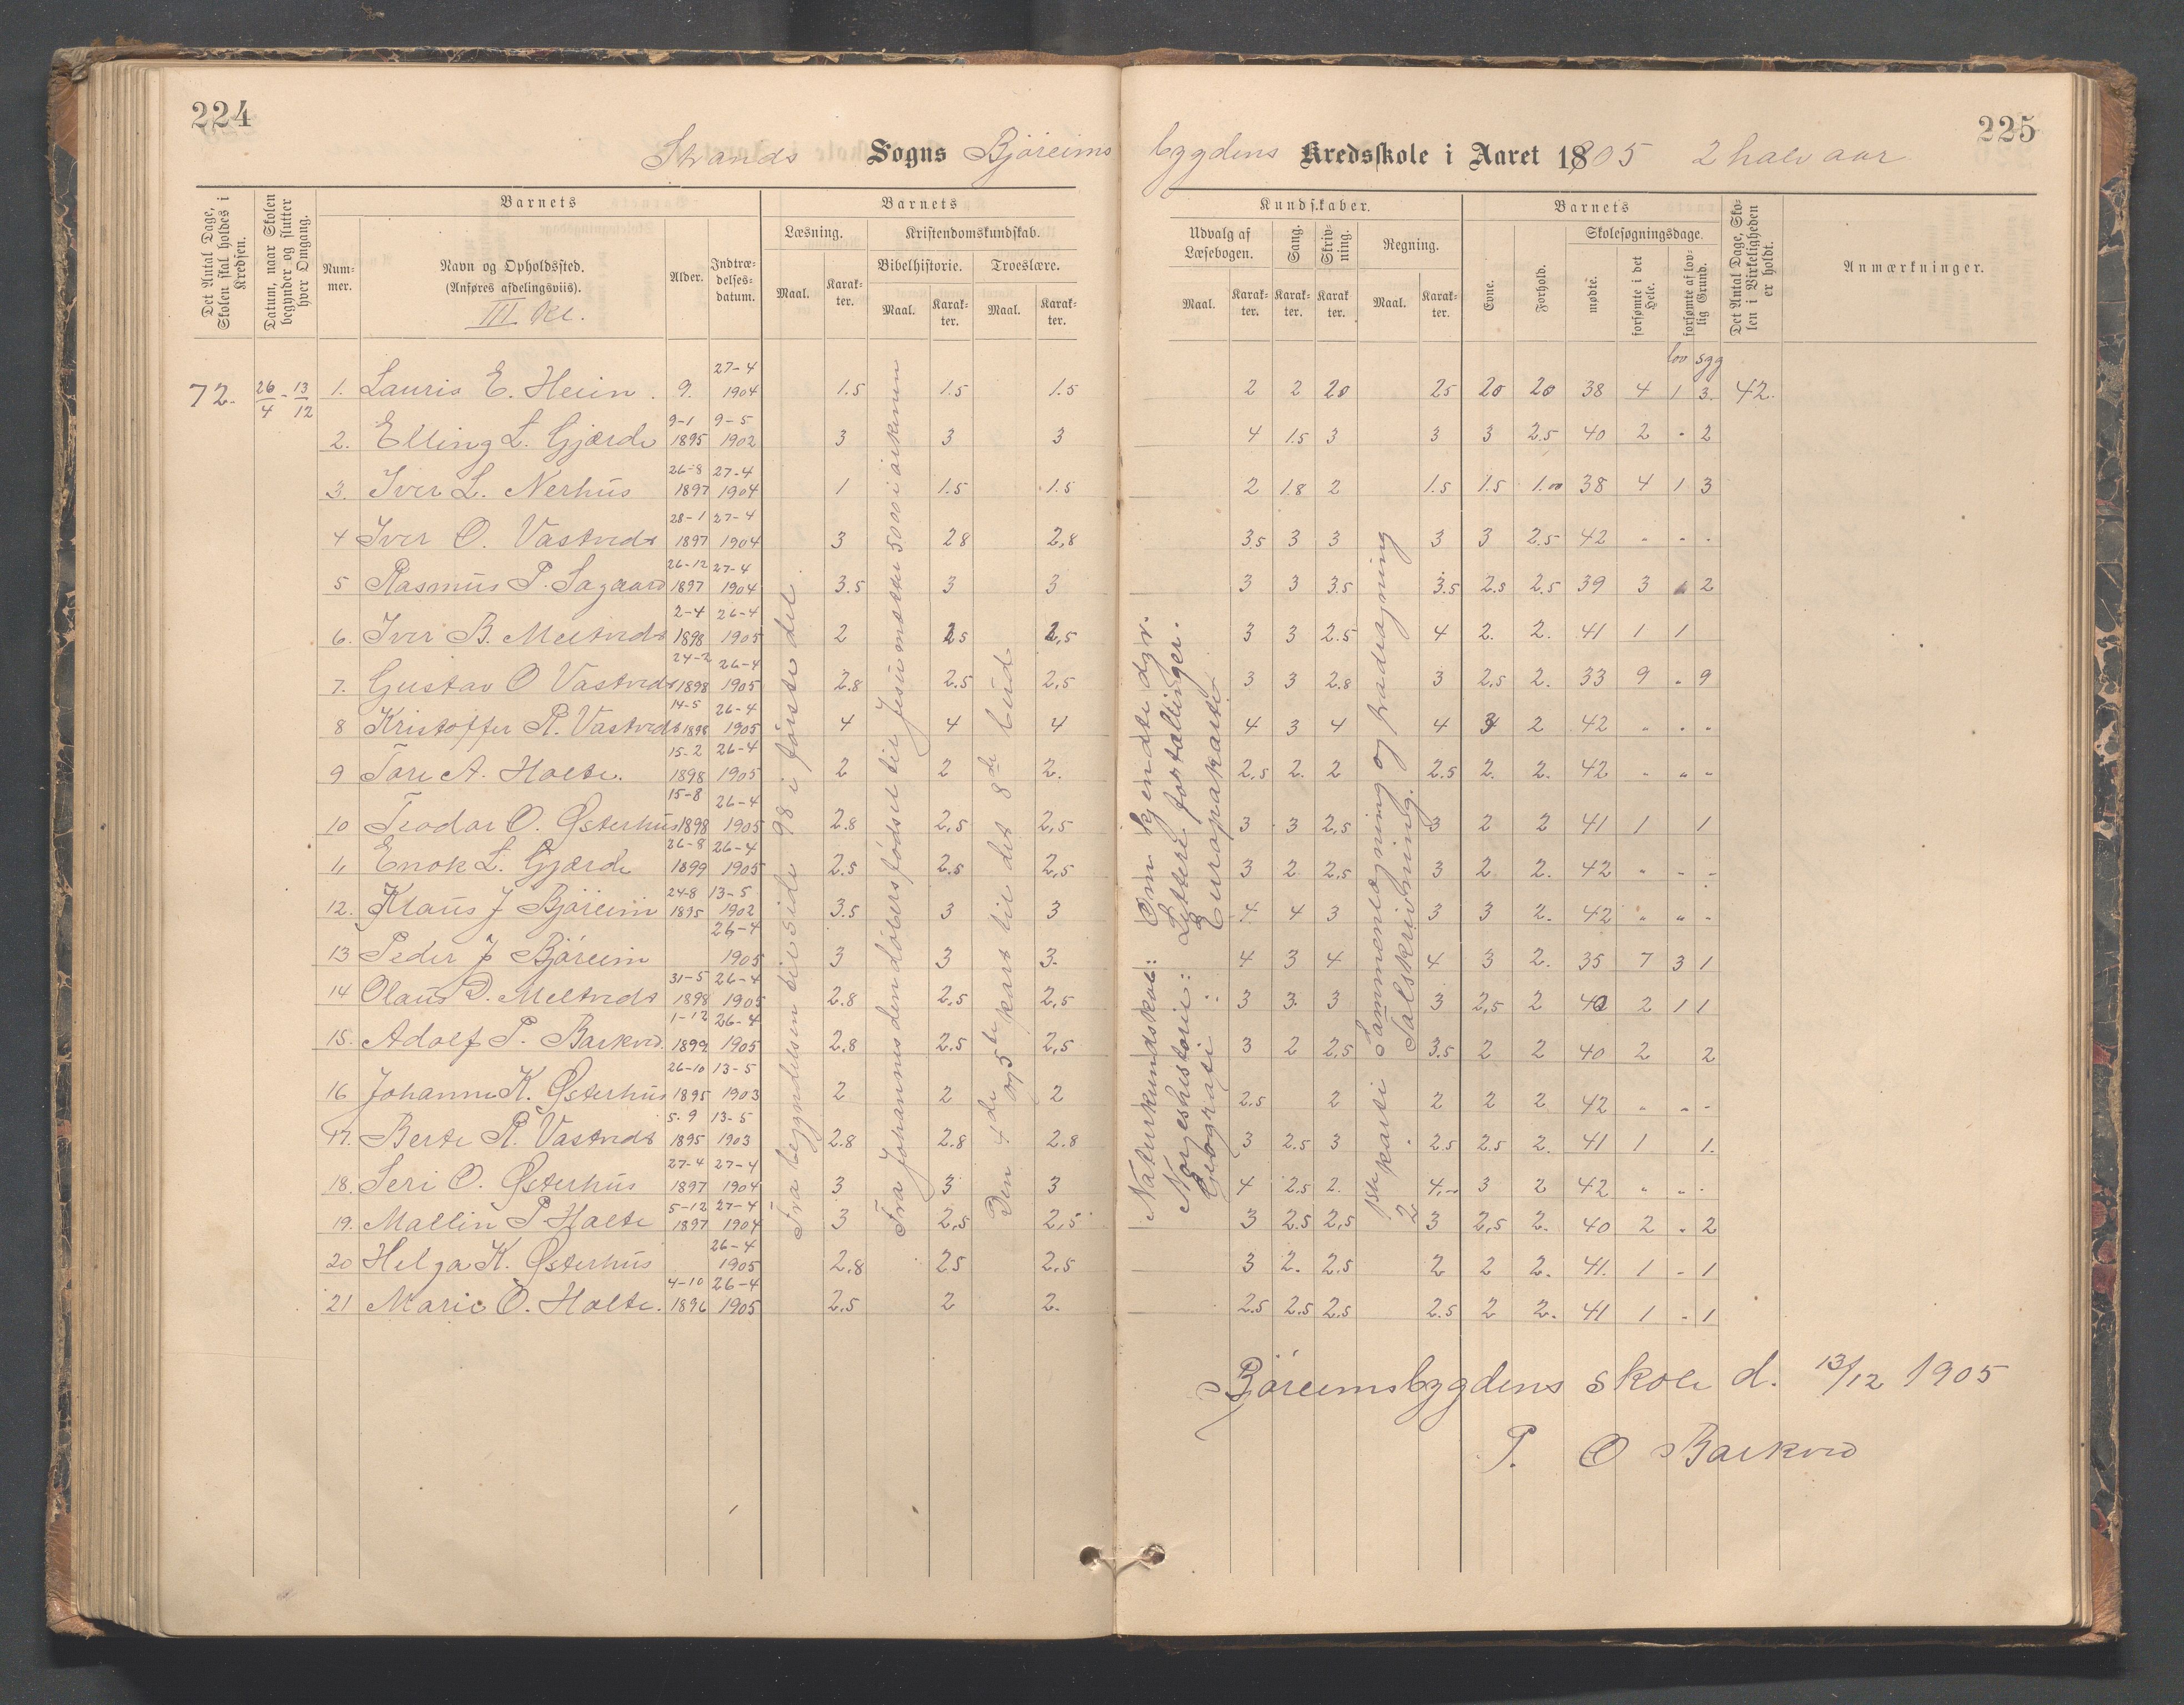 224
225
Strands Sogns Björeims bygdens Kredsskole i Aaret 1805 2 halvaar
Det Antal Dage, Skolen skal holdes i Kredsen.
Datum, naar Skolen begynder og slutter hver Omgang.
Barnets
Nummer.
Navn og Opholdssted.
(Anføres afdelingsviis).
III kl.
Alder.
Indtrædelsesdatum.
Barnets
Læsning.
Maal. Karakter.
Kristendomskundskab.
Bibelhistorie.
Maal. Karakter.
Troeslære.
Maal. Karakter.
Kundskaber.
Udvalg af Læsebogen.
Maal. Karakter.
Sang.
Karakter.
Skrivning.
Karakter
Regning.
Maal. Karakter.
Barnets
Evne.
Forhold.
Skolesøgningsdage.
mødte.
forsømte i det Hele.
forsømte af lovlig Grund.
Det Antal Dage, Skolen i Virkeligheden er holdt.
Anmærkninger.
lov syg
72. 26/4 - 13/12 1. Lauris E. Heiin. 9. 27-4 1904 1.5 1.5 1.5 2 2 20 25 20 20 38 4 1 3. 42.
2. Elling L. Gjærde 9-1 1895 9-5 1902 3 3 3 4 1.5 3 3 3 2.5 40 2 - 2
3. Iver L. Nerhus 26-8 1897 27-4 1904 1 1.5 1.5 2 1.8 2 1.5 1.5 1.00 38 4 1 3
4 Iver O. Vastveds 28-1 1897 27-4 1904 3 28 2,8 3,5 3 3 3 3 2.5 42 - - -
5 Rasmus P. Sagaard 26-12 1897 27-4 1904 3.5 3 3 3 3 3.5 3.5 2.5 2.5 39 3 2
6. Iver B. Meltveds 2-4 1898 26-4 1905 2 2.5 2,5 3 3 2.5 4 2. 2. 41 1 1
7. Gustav O Vastveds 24-2 1898 26-4 1905 2.8 2.5 2,5 3 3 2.8 3 2,5 2. 33 9 - 9
8 Kristoffer R. Vastveds 14-5 1898 26-4 1905 4 4 4 4 3 4 4 3 2 42 " " "
9 Tore A. Holte. 15-2 1898 26-4 1905 2 2 2. 2,5 2. 2 2.5 2. 2. 42 " " "
10 Teodor O. Østerhus 15-8 1898 26-4 1905 2.8 2,5 2,5 3 3 2,5 3 2 2 41 1 1
11 Enok L. Gjærde 26-8 1899 26-4 1905 2.5 2.5 2,5 3 2 2,5 3 2 2. 42 " - -
12. Klaus J Björeim 24-8 1895 13-5 1902 3.5 3 3 4 4 3 3 3 2. 42 " " -
13 Peder J Björeim 26-4 1905 3 3 3. 4 3 4 4 3 2. 35 7 3 1
14 Olaus D. Meltveds 31-5 1898 26-4 1905 2.8 2,5 2,5 3 3. 3 3 2,5 2 40 2 1 1
15. Adolf P. Barkved. 1-12 1899 26-4 1905 2,8 2.5 2,5 3 2 2,5 3.5 2 2 40 2 2
16 Johanne K. Østerhus 26-10 1895 13-5 1903 2 2 2 2.5 2 2 2 2 42 " " -
17. Berte R. Vastveds 5-9 1895 13-5 1903 2.8 2.8 2.8 3 2.5 3 2.5 2.5 2. 41 1 1.
18. Seri O. Østerhus 27-4 1897 27-4 1904 3 3 3 4 2.5 2. 4,- 3 2 42 " " -
19. Mallin P. Holte 5-12 1897 27-4 1904 3 2,5 2,5 3 2.5 2,5 3 2,5 2. 40 2 - 2
20 Helga K. Østerhus 26-4 1905 2,8 25 2,5 3 2. 2.5 2 2 2. 41. 1 - 1
21 Marie O. Holte. 4-10 1896 26-4 1905 2,5 2 2. 2.5 2,5 2,5 2.5 2 2. 41 1 - 1
Fra begyndelsen til side 98 i første del.
Fra Johannes den døbers fødsel til Jesu mætter 5000 i ørkenen
Den 4de og 5te parts til det 8de bud
Naturkundskab: Om kjendte dyr.
Norgeshistorie: Lettere fortællinger.
Geografi: Europakartet
Sammenlægning og fradragning
Talskrivning.
Björeimsbygdens skole d. 13/12 1905
P. O Barkved